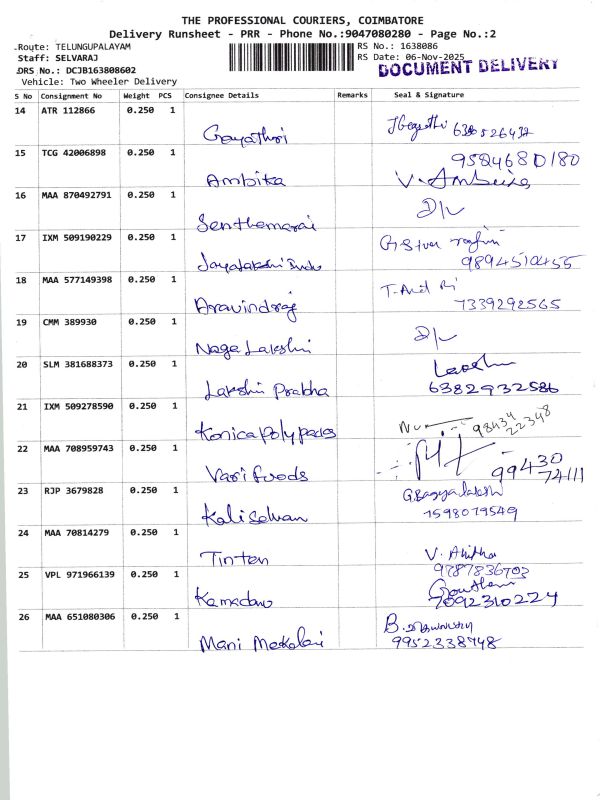 THE PROFESSIONAL COURIERS, COIMBATORE
Delivery Runsheet - PRR - Phone No.:9047080280 - Page No.:2
Route: TELUNGUPALAYAM
RS No.: 1638086
Staff: SELVARAJ
RS Date: 06-Nov-2025
DRS No.: DCJB163808602
DOCUMENT DELIVERY
Vehicle: Two Wheeler Delivery
S No Consignment No Weight PCS Consignee Details Remarks Seal & Signature
14 ATR 112866 0.250 1
Gayathri
15 TCG 42006898 0.250 1
9584680180
Ambika V. Ambika
16 MAA 870492791 0.250 1
Senthamarai
17 IXM 509190229 0.250 1
9894510455
18 MAA 577149398 0.250 1
Aravindraj 7339292565
19 CMM 389930 0.250 1
Naga Lakshmi
20 SLM 381688373 0.250 1
Lakshmi Prabha 6382932586
21 IXM 509278590 0.250 1
98434
22348
Konica Polypacks
22 MAA 708959743 0.250 1
99430
74111
Vari foods
23 RJP 3679828 0.250 1
G. Bagyalakshmi
Kaliselvan 7598079549
24 MAA 70814279 0.250 1
V. Anitha
Tinten 9787836703
25 VPL 971966139 0.250 1
Goutham
7092310224
26 MAA 651080306 0.250 1
B.
Mani Mekalai 9952338748